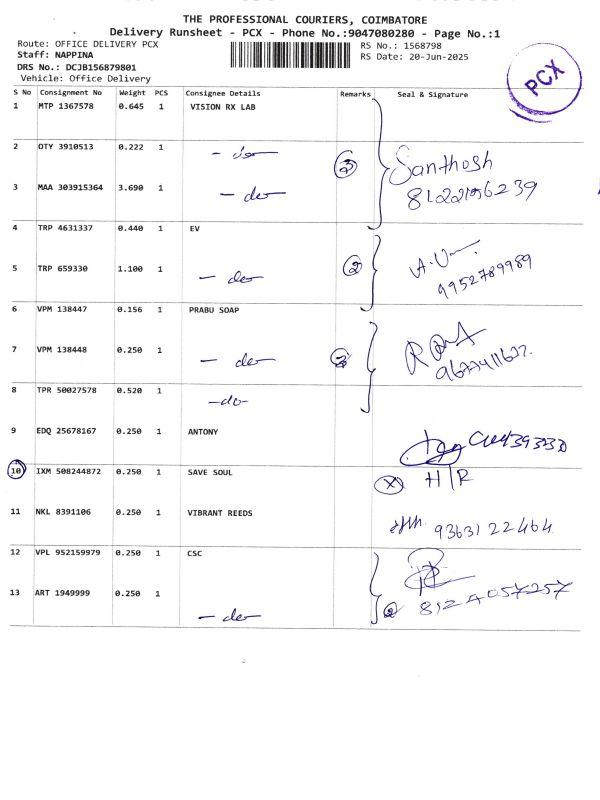 THE PROFESSIONAL COURIERS, COIMBATORE
Delivery Runsheet - PCX - Phone No.:9047080280 - Page No.:1
Route: OFFICE DELIVERY PCX
RS No.: 1568798
Staff: NAPPINA
RS Date: 20-Jun-2025
DRS No.: DCJB156879801
Vehicle: Office Delivery
PCX
S No Consignment No Weight PCS Consignee Details Remarks Seal & Signature
1 MTP 1367578 0.645 1 VISION RX LAB
2 OTY 3910513 0.222 1 - do -
3 Santhosh
3 MAA 303915364 3.690 1 - do -
4 TRP 4631337 0.440 1 EV
5 TRP 659330 1.100 1 - do - 2
9952789989
6 VPM 138447 0.156 1 PRABU SOAP
7 VPM 138448 0.250 1 - do - 3
8 TPR 50027578 0.520 1 -do-
9 EDQ 25678167 0.250 1 ANTONY
10 IXM 508244872 0.250 1 SAVE SOUL X H/R
11 NKL 8391106 0.250 1 VIBRANT REEDS 93631 22464
12 VPL 952159979 0.250 1 CSC
13 ART 1949999 0.250 1 - do - 2 8124057257